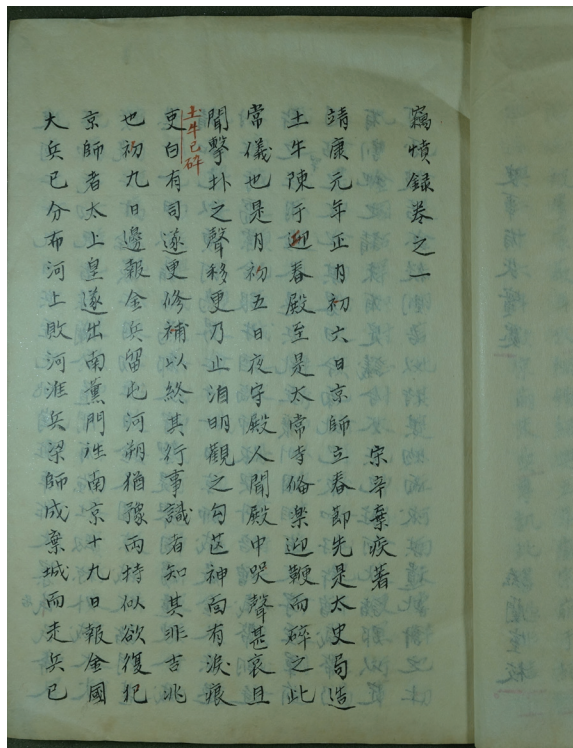 竊憤録卷之一
宋辛棄疾著
靖康元年正月初六日京師立春節先是太史局造
土牛陳于迎春殿至是太常寺俻樂迎鞭而碎之此
常儀也是月初五日夜守殿人聞殿中哭聲甚哀且
聞擊扑之聲移更乃止洎明觀之勾芒神面有淚痕
土牛已碎
吏白有司遂更修補以終其行事識者知其非吉兆
也初九日邊報金兵留屯河朔猶豫兩特似欲復犯
京師者太上皇遂出南薰門徃南京十九日報金國
大兵已分布河上敗河淮兵梁師成棄城而走兵已